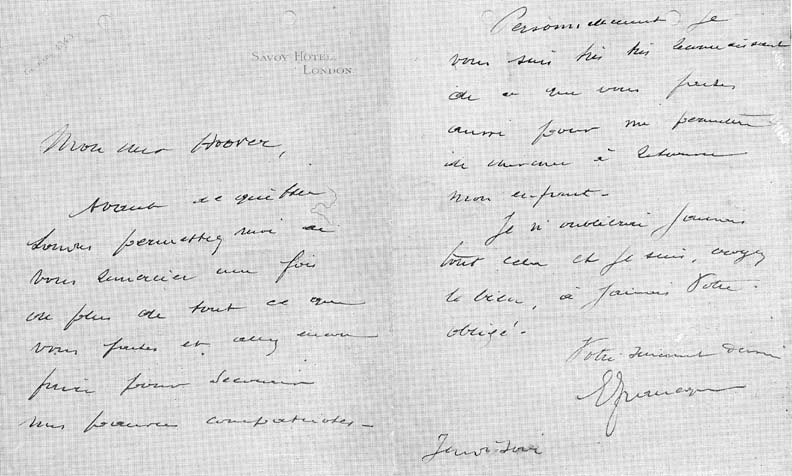 SAVOY HOTEL,
LONDON.
Mon cher Hoover,
Avant de quitter
Londres permettez moi de
vous remercier une fois
de plus de tout ce que
vous faites et allez encore
faire pour secourir
nos pauvres compatriotes -
Personnellement je
vous suis très très reconnaissant
de ce que vous faites
aussi pour me permettre
de chercher à retrouver
mon enfant -
Je n'oublierai jamais
tout cela et je suis, croyez
le bien, à jamais Votre
obligé.
Votre sincèrement dévoué
EFrancqui
Jeudi soir